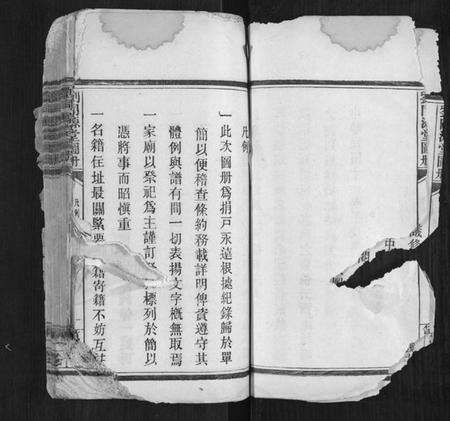 凡例
一此次圖册爲捐戸永遠根據紀錄歸於單
簡以便稽查條約務載詳明俾資遵守其
體例與譜有間一切表揚文字槪無取焉
一家廟以祭祀爲主謹訂 標列於簡以
憑將事而昭愼重
一名籍住址最關緊要 籍寄籍不妨互
凡例
堂圖册